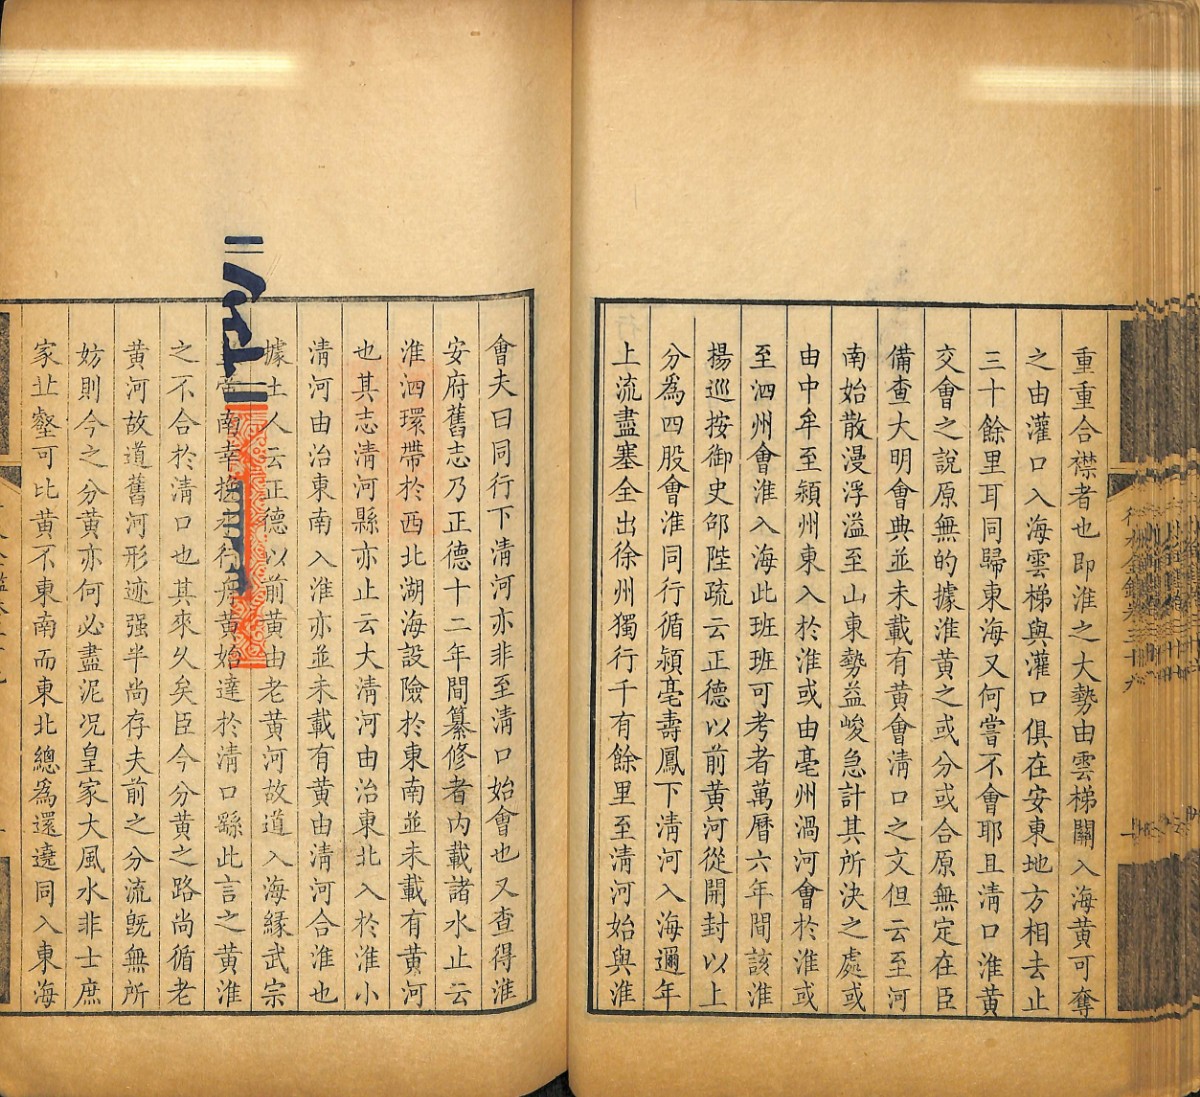 重重合襟者也即淮之大勢由雲梯關入海黃可奪
之由灌口入海雲梯與灌口俱在安東地方相去止
三十餘里耳同歸東海又何嘗不會耶且清口淮黃
交會之說原無的據淮黃之或分或合原無定在臣
備查大明會典並未載有黃會清口之文但云至河
南始散漫浮溢至山東勢益峻急計其所決之處或
由中牟至潁州東入於淮或由亳州渦河會於淮或
至泗州會淮入海此班班可考者萬曆六年間該淮
揚巡按御史邵陛疏云正德以前黃河從開封以上
分為四股會淮同行循潁亳壽鳳下清河入海邇年
上流盡塞全出徐州獨行千有餘里至清河始與淮
會夫曰同行下清河亦非至清口始會也又查得淮
安府舊志乃正德十二年間纂修者內載諸水止云
淮泗環帶於西北湖海設險於東南並未載有黃河
也其志清河縣亦止云大清河由治東北入於淮小
清河由治東南入淮亦並未載有黃由清河合淮也
據土人云正德以前黃由老黃河故道入海緣武宗
南幸行黃始達於清口繇此言之黃淮
之不合於清口也其來久矣臣今分黃之路尚循老
黃河故道舊河形迹强半尚存夫前之分流旣無所
妨則今之分黃亦何必盡泥况皇家大風水非士庶
家丘壑可比黃不東南而東北總為還遶同入東海